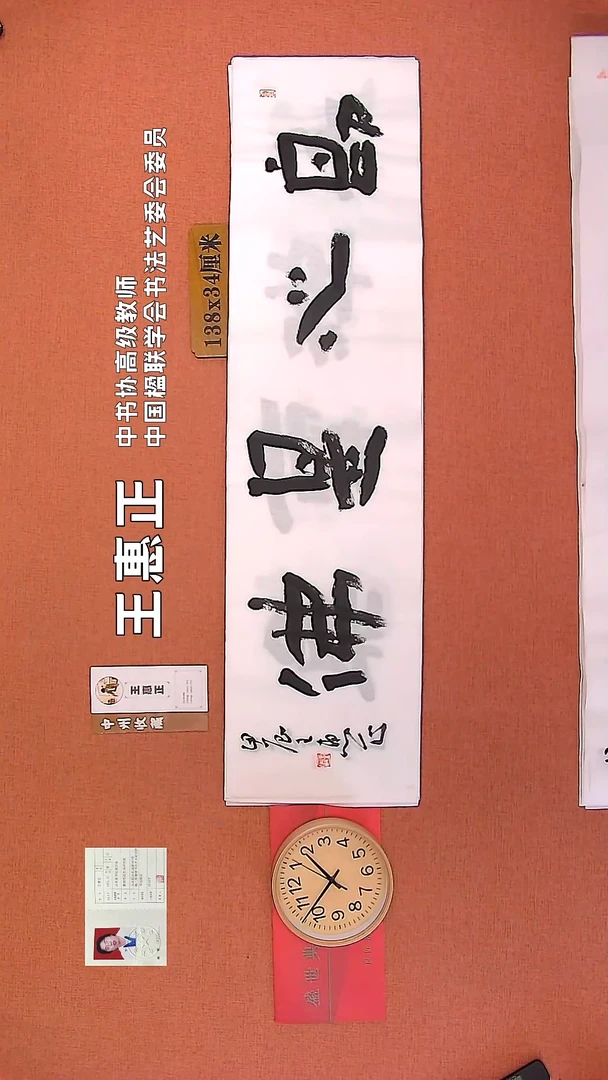 王惠正
中书协高级教师
中国楹联学会书法艺委会委员
138x34厘米
即心是佛
甲辰之
王惠正
中州收藏
12
1
2
3
4
5
6
7
8
9
10
11